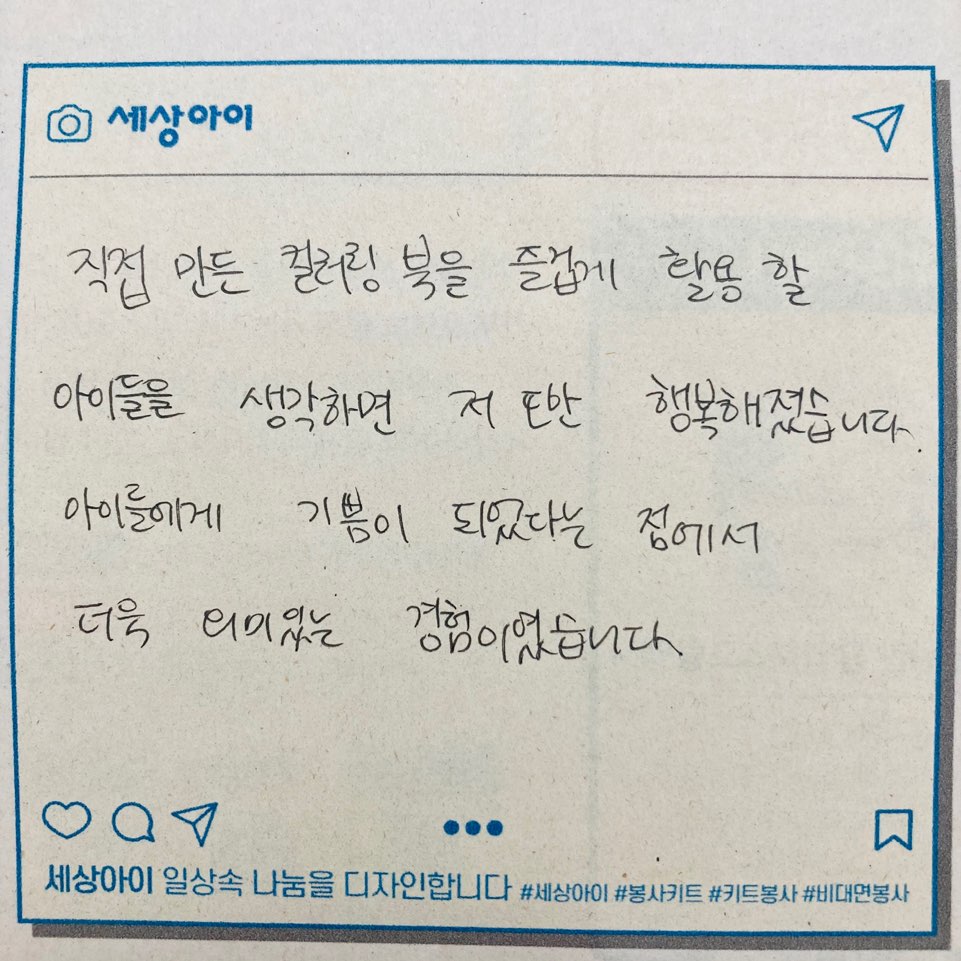 세상아이
직접 만든 컬러링 북을 즐겁게 활용 할
아이들을 생각하면 저 또한 행복해졌습니다.
아이들에게 기쁨이 되었다는 점에서
더욱 의미있는 경험이었습니다.
세상아이 일상속 나눔을 디자인합니다 #세상아이 #봉사키트 #키트봉사 #비대면봉사